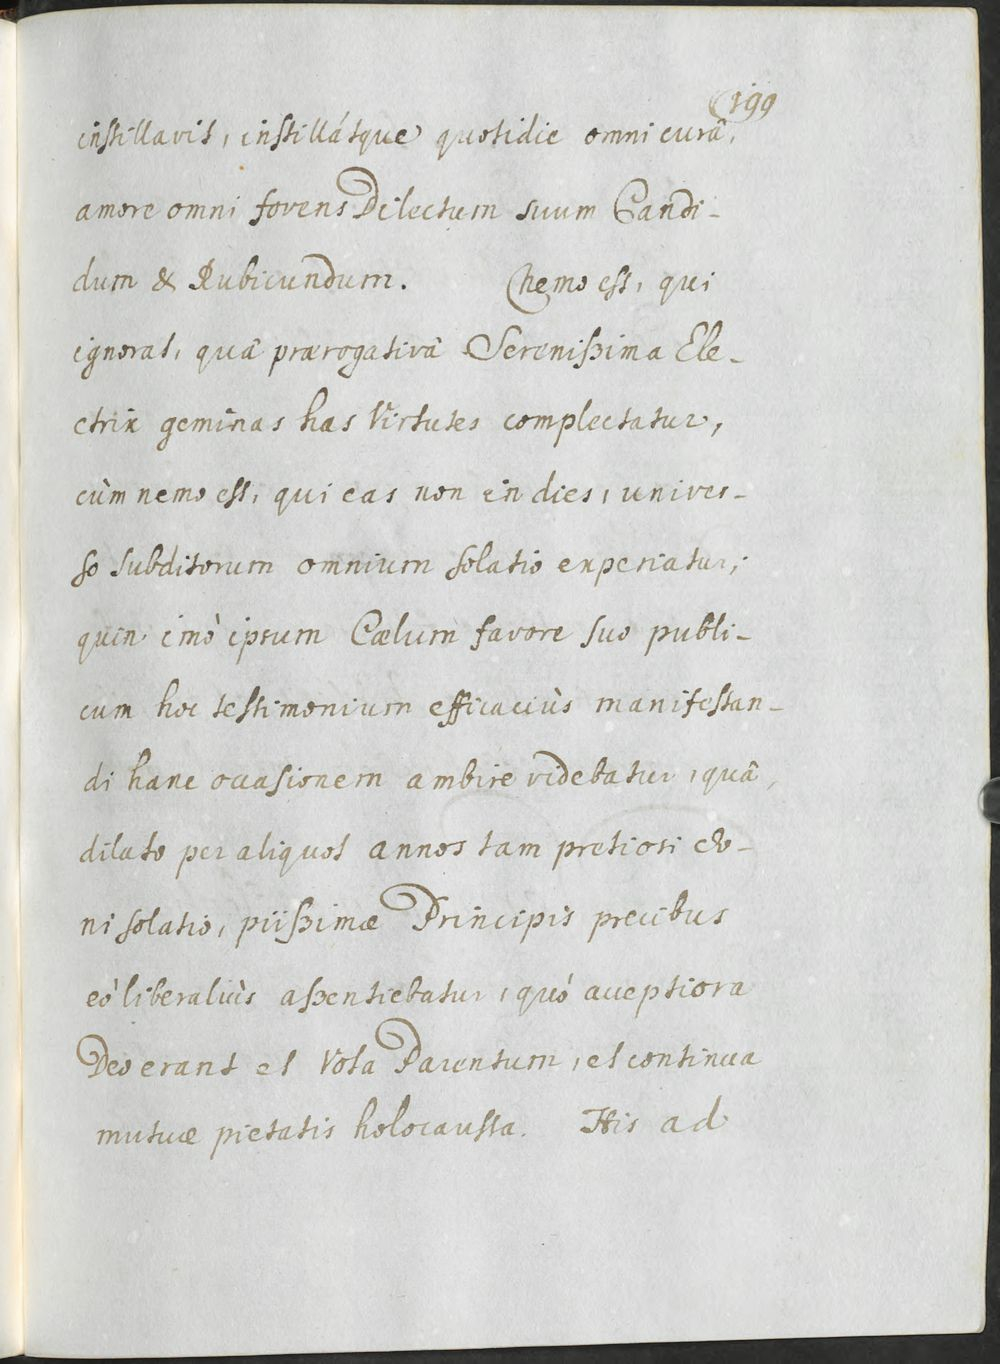 199
instillavit, instillátque quotidie omni curâ,
amore omni fovens Dilectum suum Candi-
dum & Rubicundum. Nemo est, qui
ignorat, quâ prærogativâ Serenißima Ele-
ctrix geminas has Virtutes complectatur,
cùm nemo est, qui eas non in dies, univer-
so subditorum omnium solatio experiatur;
quin imò ipsum Cælum favore suo publi-
cum hoc testimonium efficaciùs manifestan-
di hanc occasionem ambire videbatur, quâ,
dilato per aliquot annos tam pretiosi do-
ni solatio, piißimæ Principis precibus
eò liberaliùs aßentiebatur, quó acceptiora
Deo erant et Vota Parentum, et continua
mutuæ pietatis holocausta. His ad